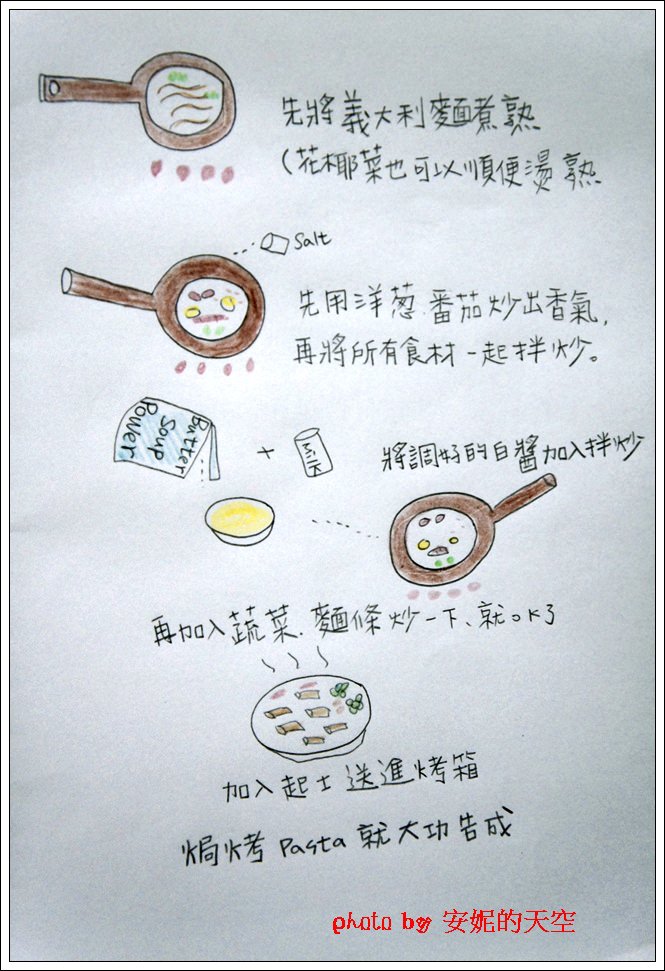 先將義大利麵煮熟
(花椰菜也可以順便燙熟
Salt
先用洋葱.番茄炒出香氣,
再將所有食材一起拌炒。
Butter
Soup
Power
+
Milk
將調好的白醬加入拌炒
再加入蔬菜.麵條炒一下、就OK了
加入起士送進烤箱
焗烤Pasta就大功告成
photo by 安妮的天空